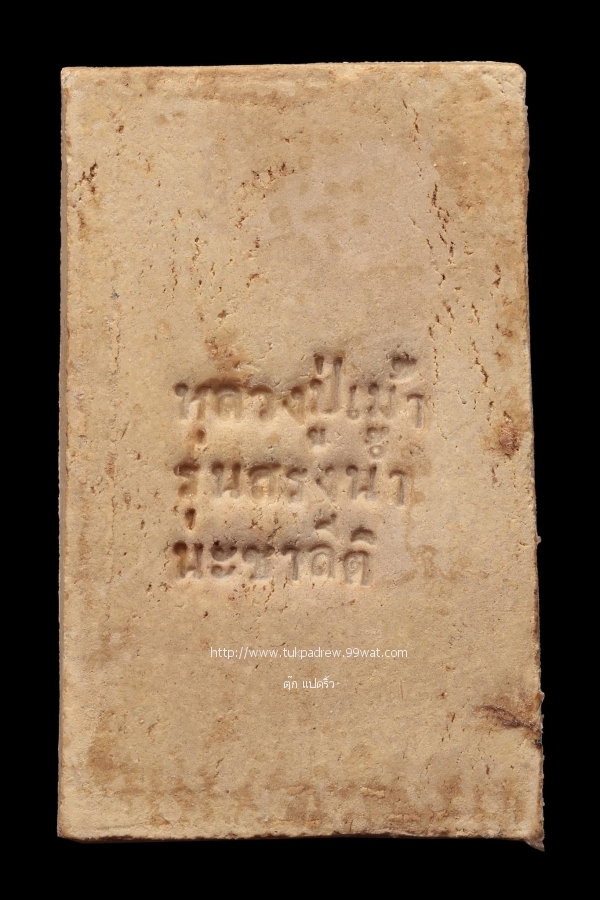 หลวงปู่เม้า
รุ่นสรงน้ำ
นะชาลีติ
http://www.tukpadrew.99wat.com
ตุ๊ก แปดริ้ว